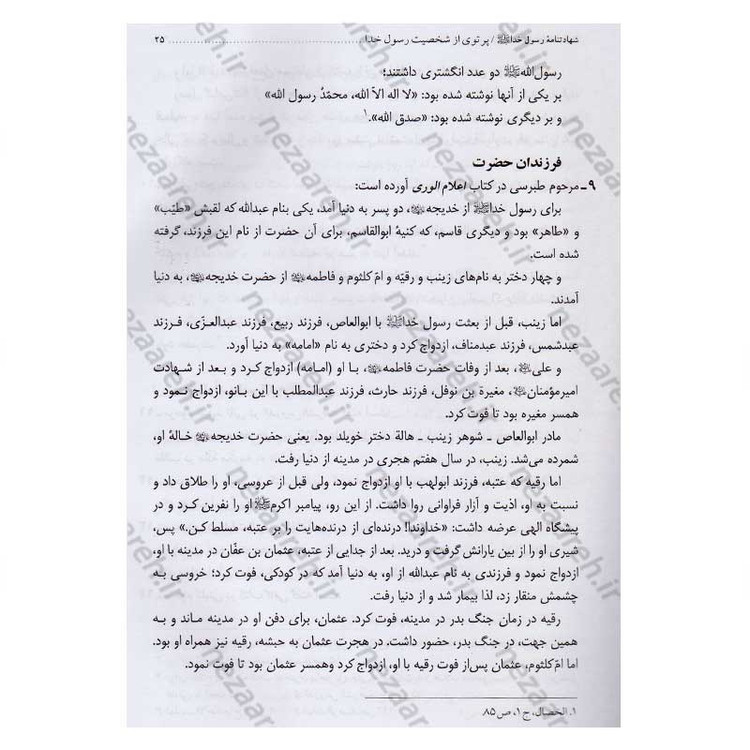 شهادتنامهٔ رسول خداﷺ / پرتوی از شخصیت رسول خدا ........ ۲۵
رسول‌اللهﷺ دو عدد انگشتری داشتند؛
بر یکی از آنها نوشته شده بود: «لا اله الاّ الله، محمّدٌ رسول الله»
و بر دیگری نوشته شده بود: «صدق الله».۱
فرزندان حضرت
۹ـ مرحوم طبرسی در کتاب اعلام‌الوری آورده است:
برای رسول خداﷺ از خدیجه، دو پسر به دنیا آمد، یکی بنام عبدالله که لقبش «طیّب»
و «طاهر» بود و دیگری قاسم، که کنیهٔ ابوالقاسم، برای آن حضرت از نام این فرزند، گرفته
شده است.
و چهار دختر به نام‌های زینب و رقیّه و امّ کلثوم و فاطمه از حضرت خدیجه، به دنیا
آمدند.
اما زینب، قبل از بعثت رسول خداﷺ با ابوالعاص، فرزند ربیع، فرزند عبدالعزّی، فرزند
عبدشمس، فرزند عبدمناف، ازدواج کرد و دختری به نام «امامه» به دنیا آورد.
و علی، بعد از وفات حضرت فاطمه، با او (امامه) ازدواج کرد و بعد از شهادت
امیرمؤمنان، مغیرة بن نوفل، فرزند حارث، فرزند عبدالمطلب با این بانو، ازدواج نمود و
همسر مغیره بود تا فوت کرد.
مادر ابوالعاص ـ شوهر زینب ـ هالة دختر خویلد بود. یعنی حضرت خدیجه خالهٔ او،
شمرده می‌شد. زینب، در سال هفتم هجری در مدینه از دنیا رفت.
اما رقیه که عتبه، فرزند ابولهب با او ازدواج نمود، ولی قبل از عروسی، او را طلاق داد و
نسبت به او، اذیت و آزار فراوانی روا داشت. از این رو، پیامبر اکرمﷺ او را نفرین کرد و در
پیشگاه الهی عرضه داشت: «خداوندا! درنده‌ای از درنده‌هایت را بر عتبه، مسلط کن.» پس،
شیری او را از بین یارانش گرفت و درید. بعد از جدایی از عتبه، عثمان بن عفّان در مدینه با او،
ازدواج نمود و فرزندی به نام عبدالله از او، به دنیا آمد که در کودکی، فوت کرد؛ خروسی به
چشمش منقار زد، لذا بیمار شد و از دنیا رفت.
رقیه در زمان جنگ بدر در مدینه، فوت کرد. عثمان، برای دفن او در مدینه ماند و به
همین جهت، در جنگ بدر، حضور داشت. در هجرت عثمان به حبشه، رقیه نیز همراه او بود.
اما امّ کلثوم، عثمان پس‌از فوت رقیه با او، ازدواج کرد وهمسر عثمان بود تا فوت نمود.
۱. الخصال، ج ۱، ص ۸۵.
nezaareh.ir